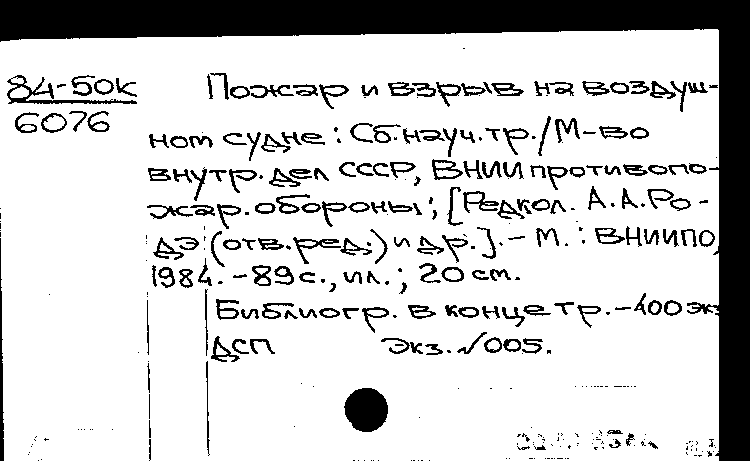 84-50к Пожар и взрыв на воздуш-
6076
ном судне: Сб.науч.тр./М-во
внутр.дел СССР, ВНИИ противопо-
жар.обороны; [Редкол. А.А.Ро-
дэ (отв.ред.) и др.].- М.: ВНИИПО,
1984.-89с., ил.; 20 см.
Библиогр. в конце тр.-400 экз
ДСП Экз.№005.